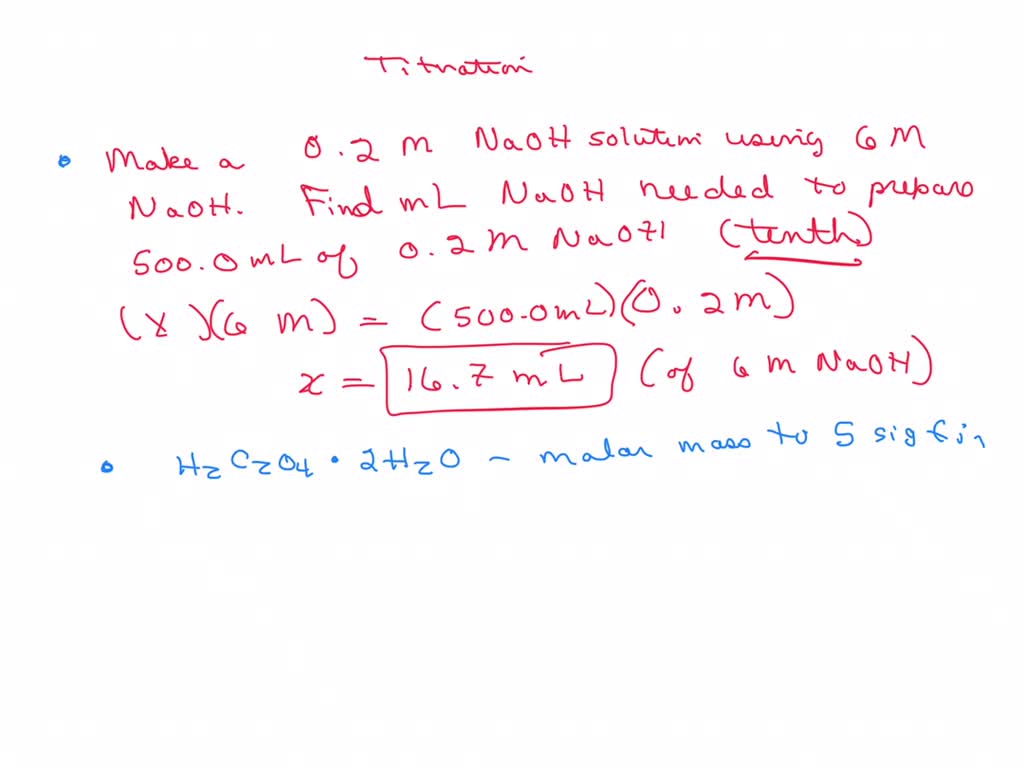 Titration
• Make a 0.2 m NaOH solution using 6 M
NaOH. Find mL NaOH needed to prepare
500.0 mL of 0.2 M NaOH (tenth)
(x)(6 m) = (500.0 mL)(0.2 m)
x = 16.7 mL (of 6 m NaOH)
• H₂C₂O₄ • 2H₂O – molar mass to 5 sig fi